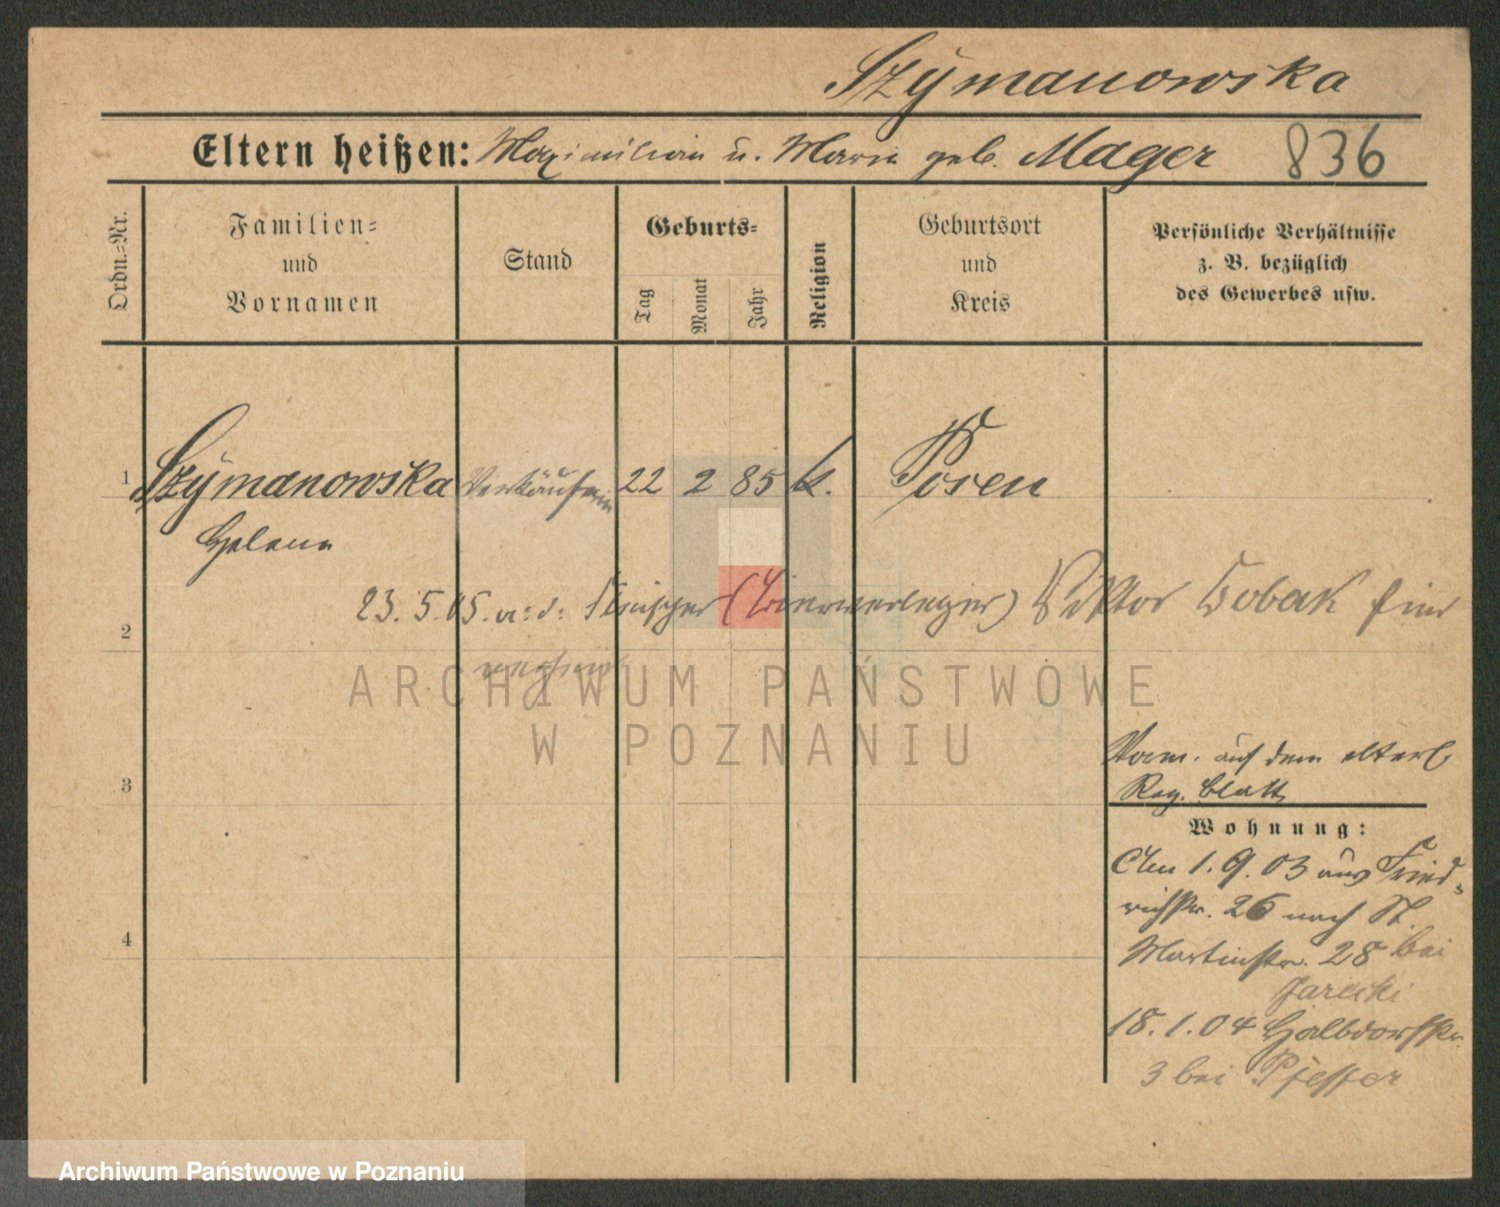 Szymanowska
Eltern heißen: Maximilian u. Maria geb. Mager 836
Ordn.-Nr.
Familien-
und
Vornamen
Stand
Geburts-
Tag
Monat
Jahr
Religion
Geburtsort
und
Kreis
Persönliche Verhältnisse
z. B. bezüglich
des Gewerbes usw.
1 Szymanowska Verkäuferin 22 2 85 k. Posen
Helena
23. 5. 05. a: d: (Bierverleger) Viktor Bobak hier
2
ARCHIWUM PAŃSTWOWE
W POZNANIU
Vorm. auf dem elterl
Reg. Blatt
3
Wohnung:
Am 1. 9. 03 aus Fried-
richstr. 26 nach St.
Martinstr. 28 bei
4
Jarecki
18. 1. 04 Halbdorfstr.
3 bei Pfeffer
Archiwum Państwowe w Poznaniu